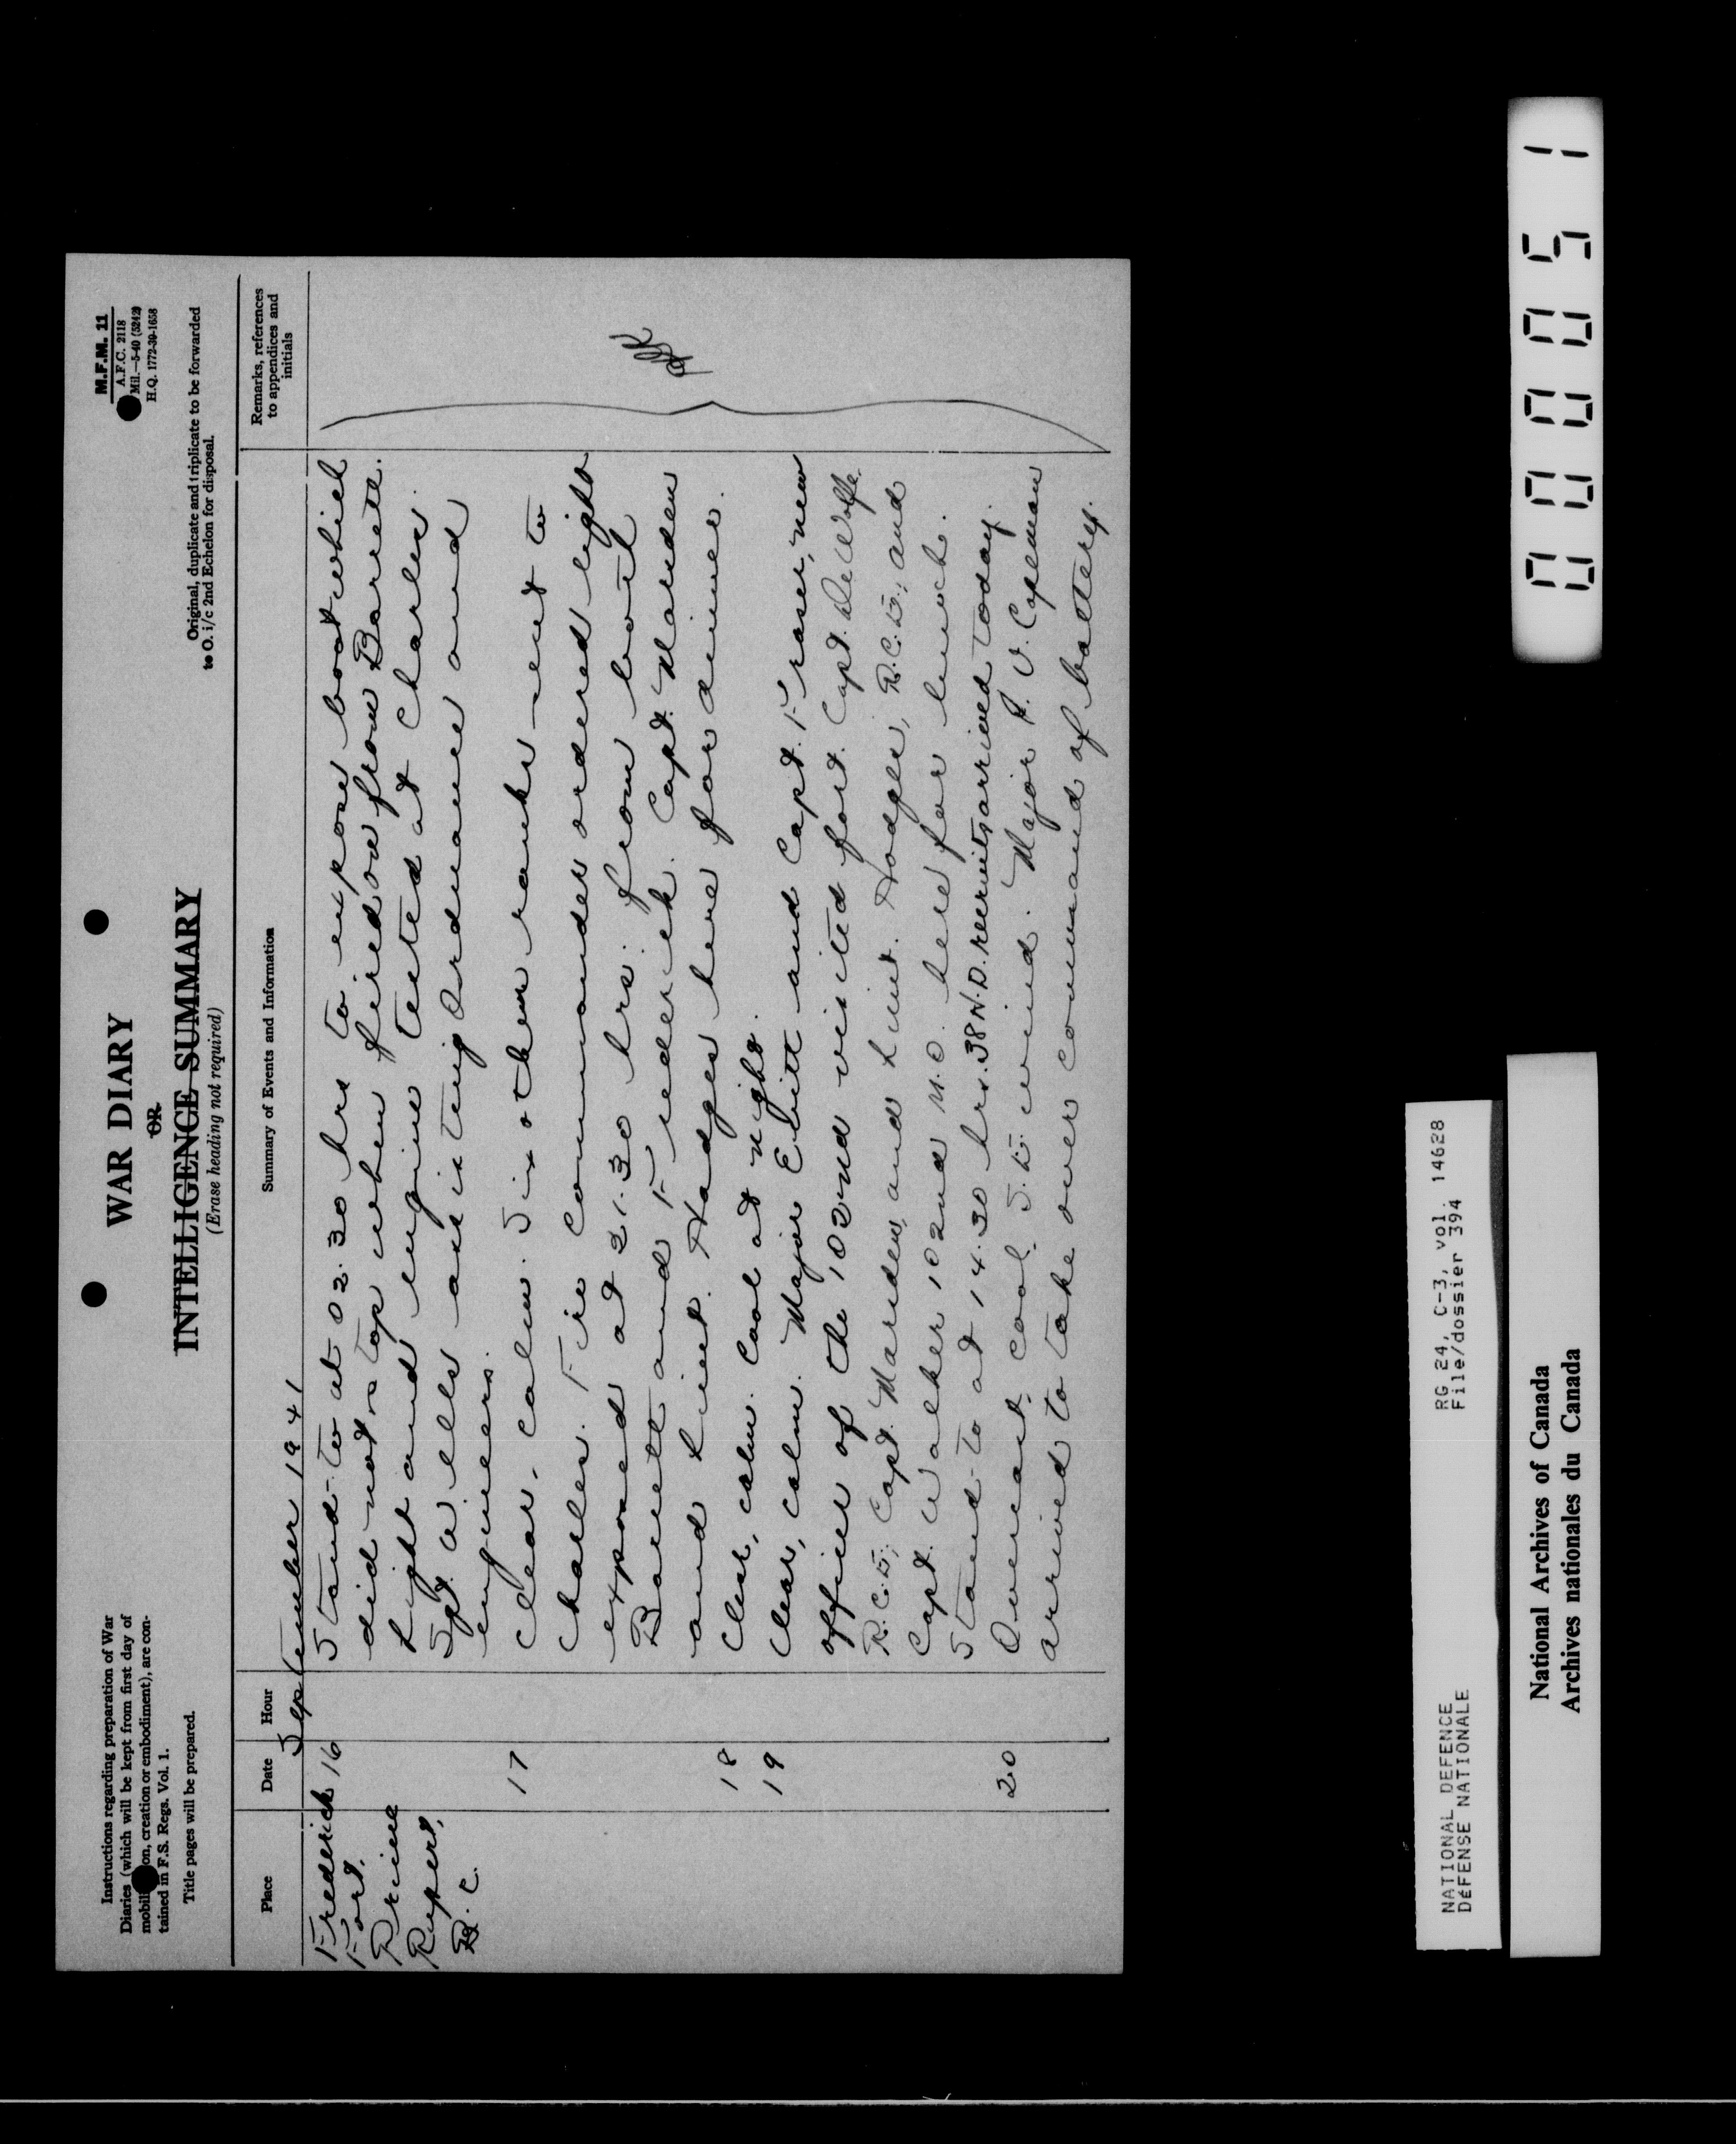 Instructions regarding preparation of War
Diaries (which will be kept from first day of
mobili on, creation or embodiment), are con-
tained in F.S. Regs. Vol. 1.
Title pages will be prepared.
WAR DIARY
OR
INTELLIGENCE SUMMARY
(Erase heading not required)
M.F.M. 11
A.F.C. 2118
Mil.—5-40 (5242)
H.Q. 1772-39-1658
Original, duplicate and triplicate to be forwarded
to O. i/c 2nd Echelon for disposal.
Place Date Hour Summary of Events and Information Remarks, references
to appendices and
initials
September 1941
Frederick 16 Stand-to at 02.30 hrs to expose boat which
Fort, did not stop when fired on from Barrett.
Prince Light and engine tested at Charles.
Rupert, Sgt. Wells assisting Ordnance and
B.C. engineers.
17 Clear, calm. Six other ranks sent to
Charles. Fire Commander ordered lights
exposed at 21.30 hrs. from boat
Barrett and Frederick. Capt. Marsden
and Lieut. Hodges here for dinner.
18 Clear, calm. Cool at night.
19 Clear, calm. Major Ebitt and Capt. Fraser, new
officer of the 102nd visited fort. Capt. DeWolfe
R.C.E., Capt. Marsden, and Lieut. Hodges, R.C.E., and
Capt. Walker 102nd M.O. here for lunch.
Stand-to at 14.30 hrs. 38 N.D. recruits arrived today.
20 Overcast, cool. S.E. wind. Major R. V. Capleman
arrived to take over command of battery.
NATIONAL DEFENCE
DéFENSE NATIONALE
RG 24, C-3, vol. 14628
File/dossier 394
National Archives of Canada
Archives nationales du Canada
000051